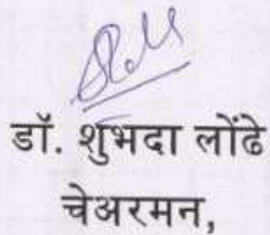 डॉ. शुभदा लोंढे
चेअरमन,